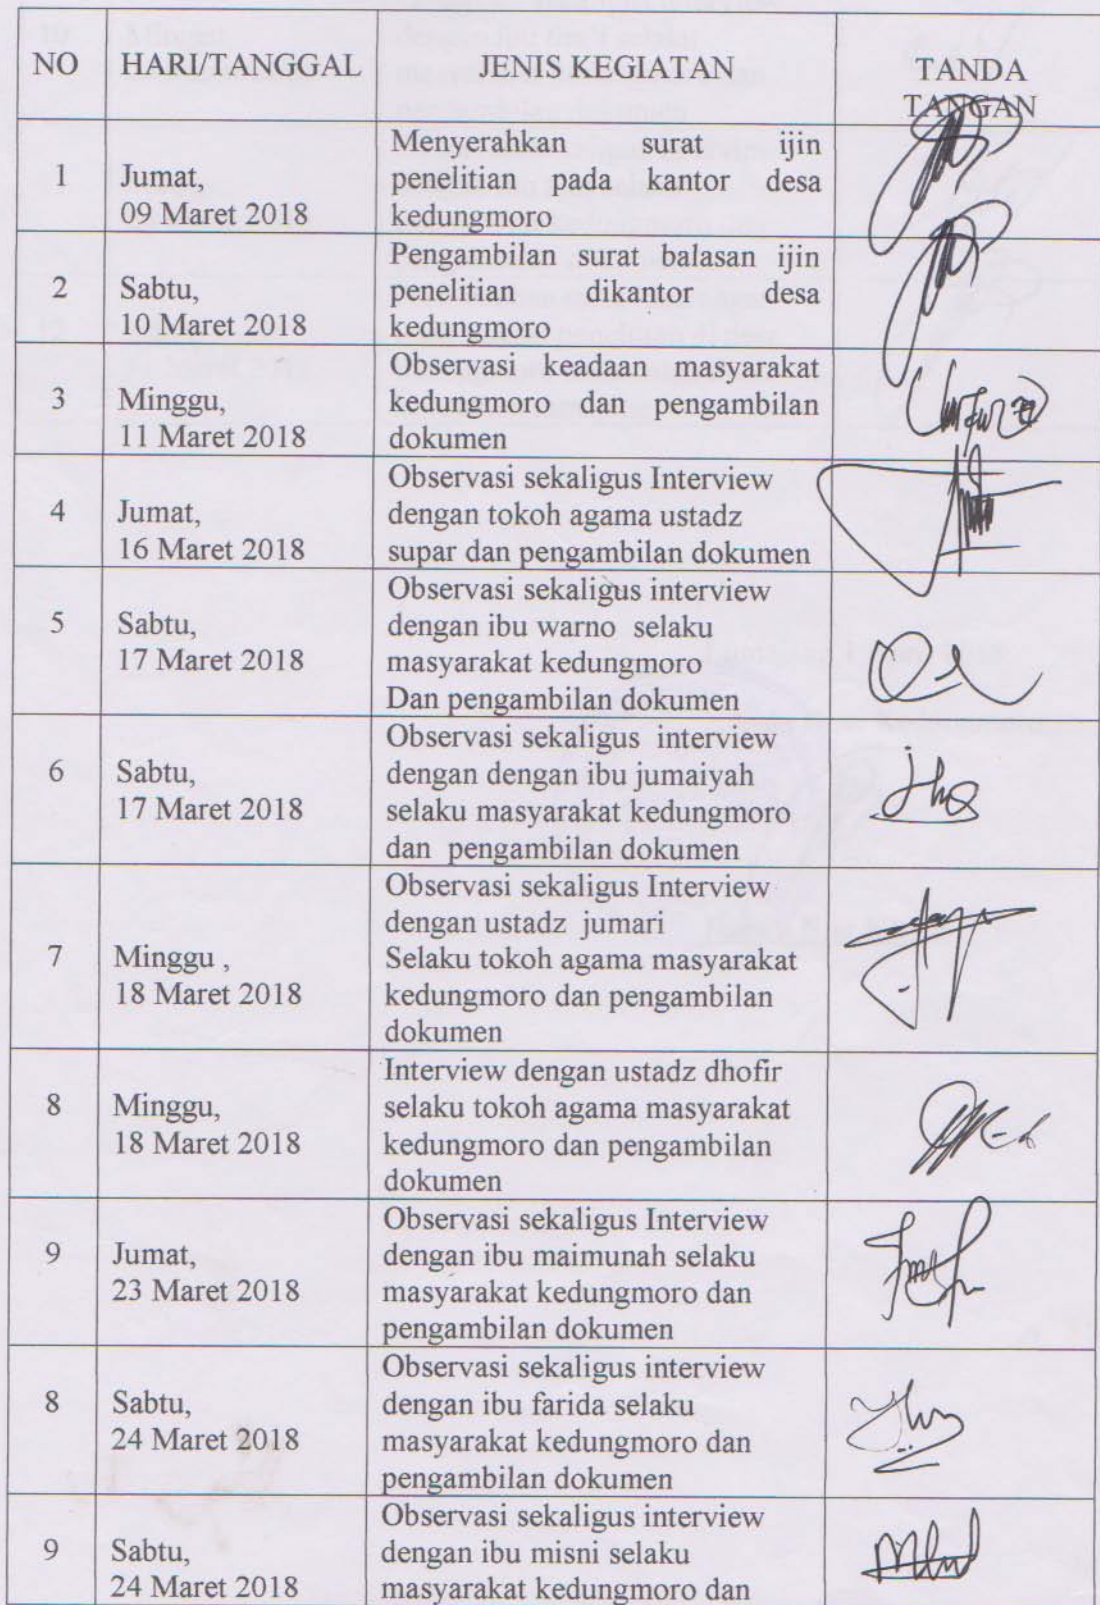 NO HARI/TANGGAL JENIS KEGIATAN TANDA
TANGAN
1 Jumat,
09 Maret 2018
Menyerahkan surat ijin
penelitian pada kantor desa
kedungmoro
2 Sabtu,
10 Maret 2018
Pengambilan surat balasan ijin
penelitian dikantor desa
kedungmoro
3 Minggu,
11 Maret 2018
Observasi keadaan masyarakat
kedungmoro dan pengambilan
dokumen
4 Jumat,
16 Maret 2018
Observasi sekaligus Interview
dengan tokoh agama ustadz
supar dan pengambilan dokumen
5 Sabtu,
17 Maret 2018
Observasi sekaligus interview
dengan ibu warno selaku
masyarakat kedungmoro
Dan pengambilan dokumen
6 Sabtu,
17 Maret 2018
Observasi sekaligus interview
dengan dengan ibu jumaiyah
selaku masyarakat kedungmoro
dan pengambilan dokumen
7 Minggu ,
18 Maret 2018
Observasi sekaligus Interview
dengan ustadz jumari
Selaku tokoh agama masyarakat
kedungmoro dan pengambilan
dokumen
8 Minggu,
18 Maret 2018
Interview dengan ustadz dhofir
selaku tokoh agama masyarakat
kedungmoro dan pengambilan
dokumen
9 Jumat,
23 Maret 2018
Observasi sekaligus Interview
dengan ibu maimunah selaku
masyarakat kedungmoro dan
pengambilan dokumen
8 Sabtu,
24 Maret 2018
Observasi sekaligus interview
dengan ibu farida selaku
masyarakat kedungmoro dan
pengambilan dokumen
9 Sabtu,
24 Maret 2018
Observasi sekaligus interview
dengan ibu misni selaku
masyarakat kedungmoro dan